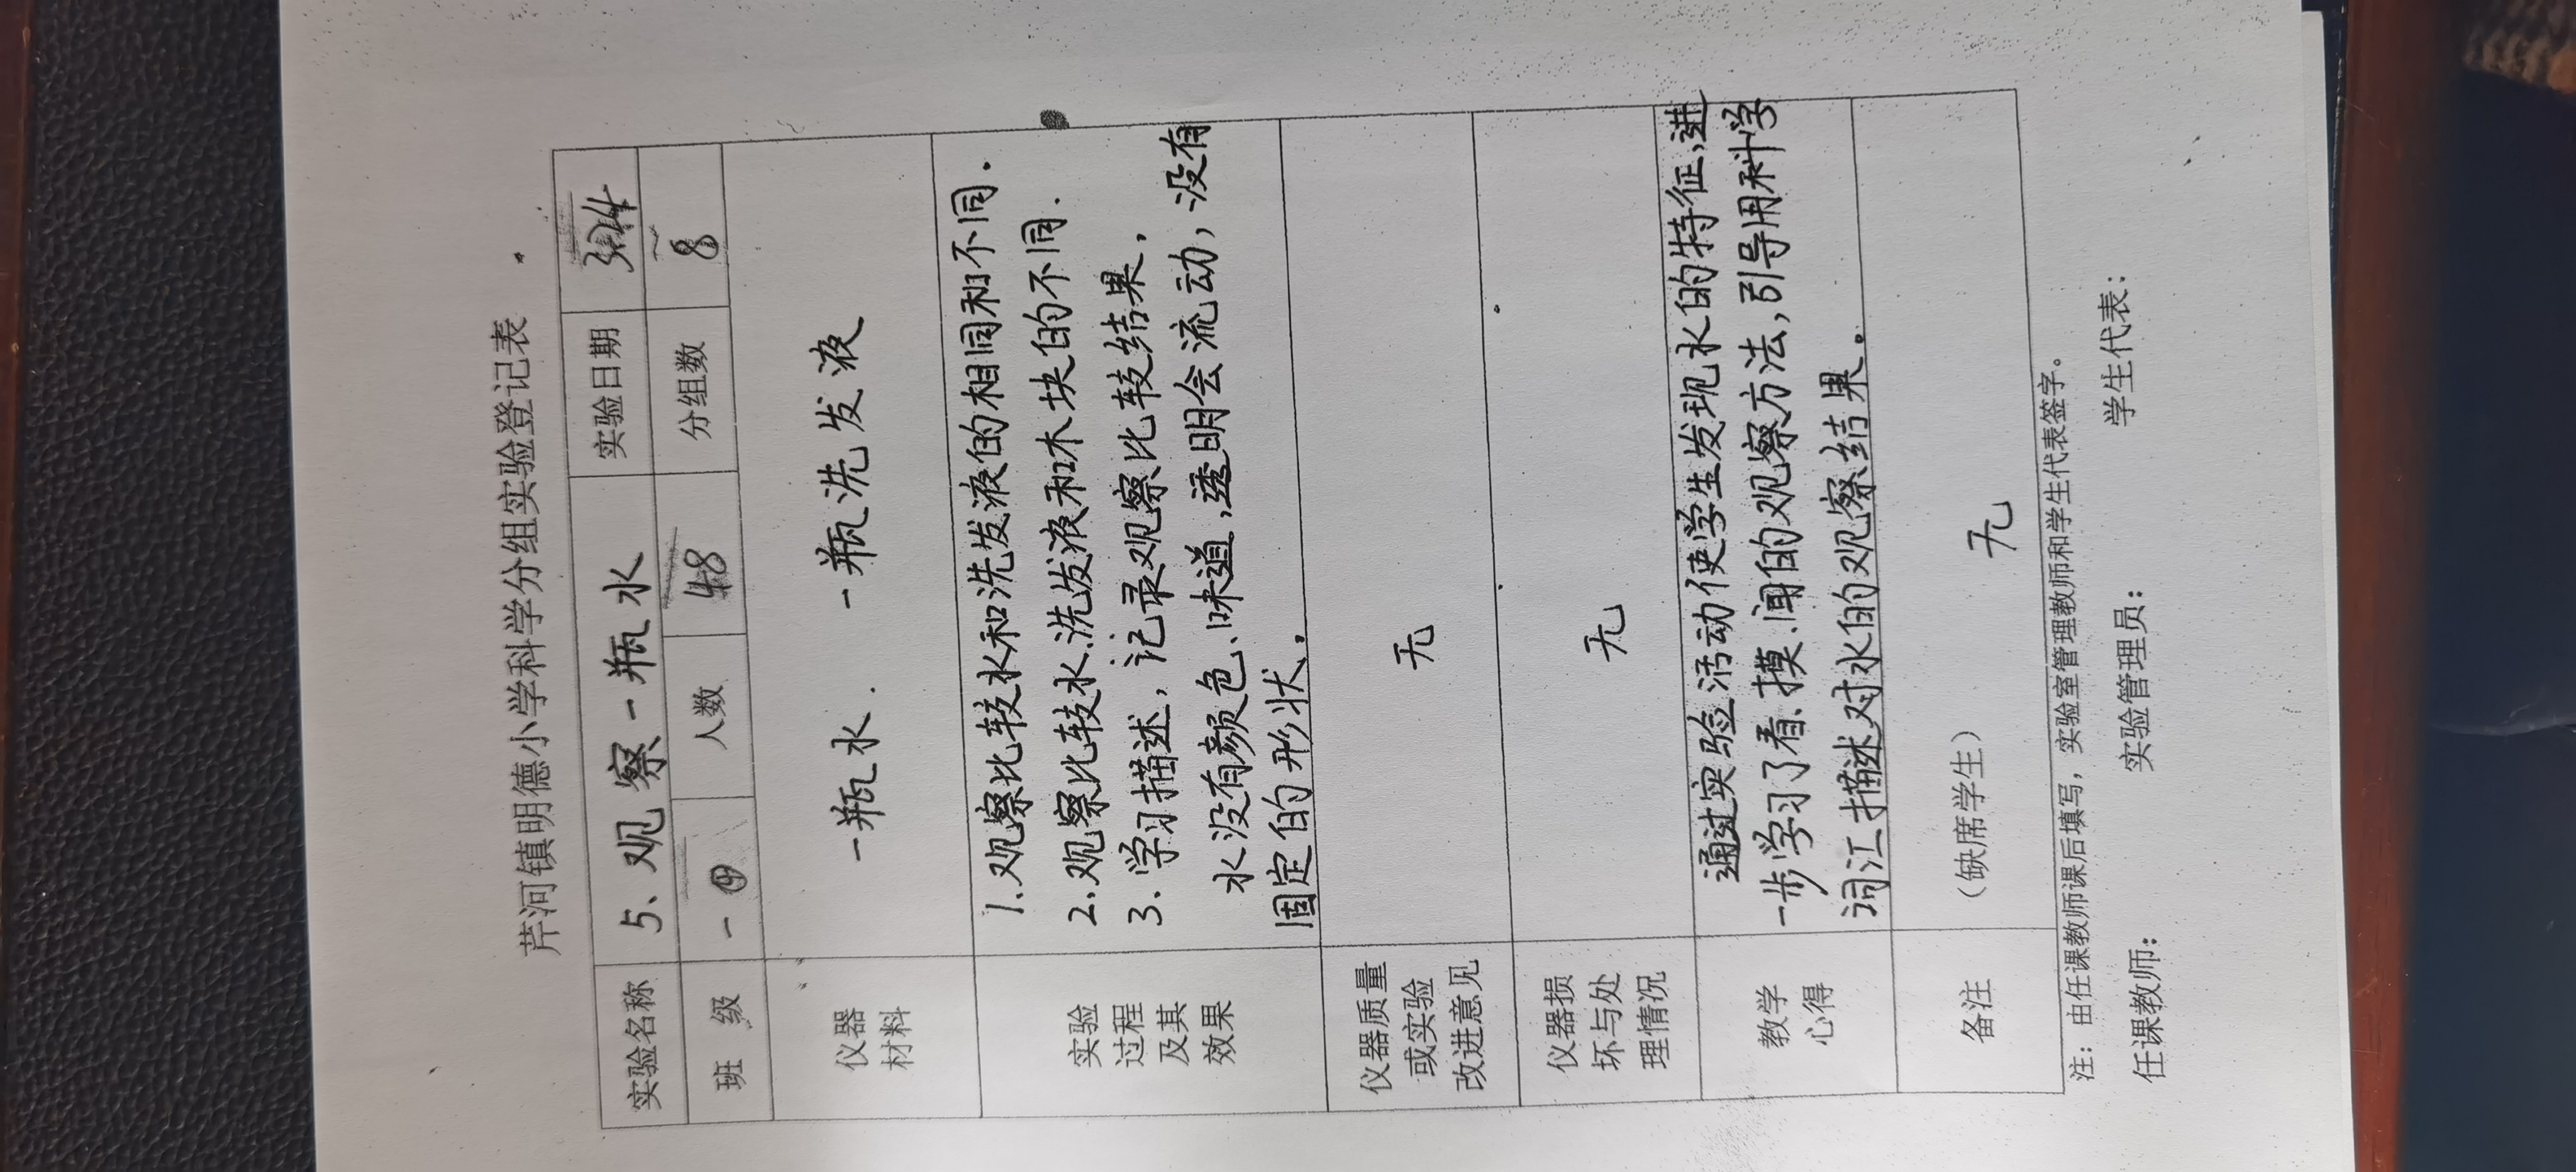 芹河镇明德小学科学分组实验登记表
实验名称 5、观察一瓶水 实验日期
班级 一④ 人数 48 分组数 8
仪器材料 一瓶水. 一瓶洗发液
实验过程及其效果
1.观察比较水和洗发液的相同和不同.
2.观察比较水.洗发液和木块的不同.
3.学习描述,记录观察比较结果,
水没有颜色、味道,透明会流动,没有
固定的形状.
仪器质量或实验改进意见 无
仪器损坏与处理情况 无
教学心得
通过实验活动使学生发现水的特征,进
一步学习了看、摸、闻的观察方法,引导用科学
词汇描述对水的观察结果.
备注 (缺席学生) 无
注:由任课教师课后填写,实验室管理教师和学生代表签字。
任课教师: 实验管理员: 学生代表: